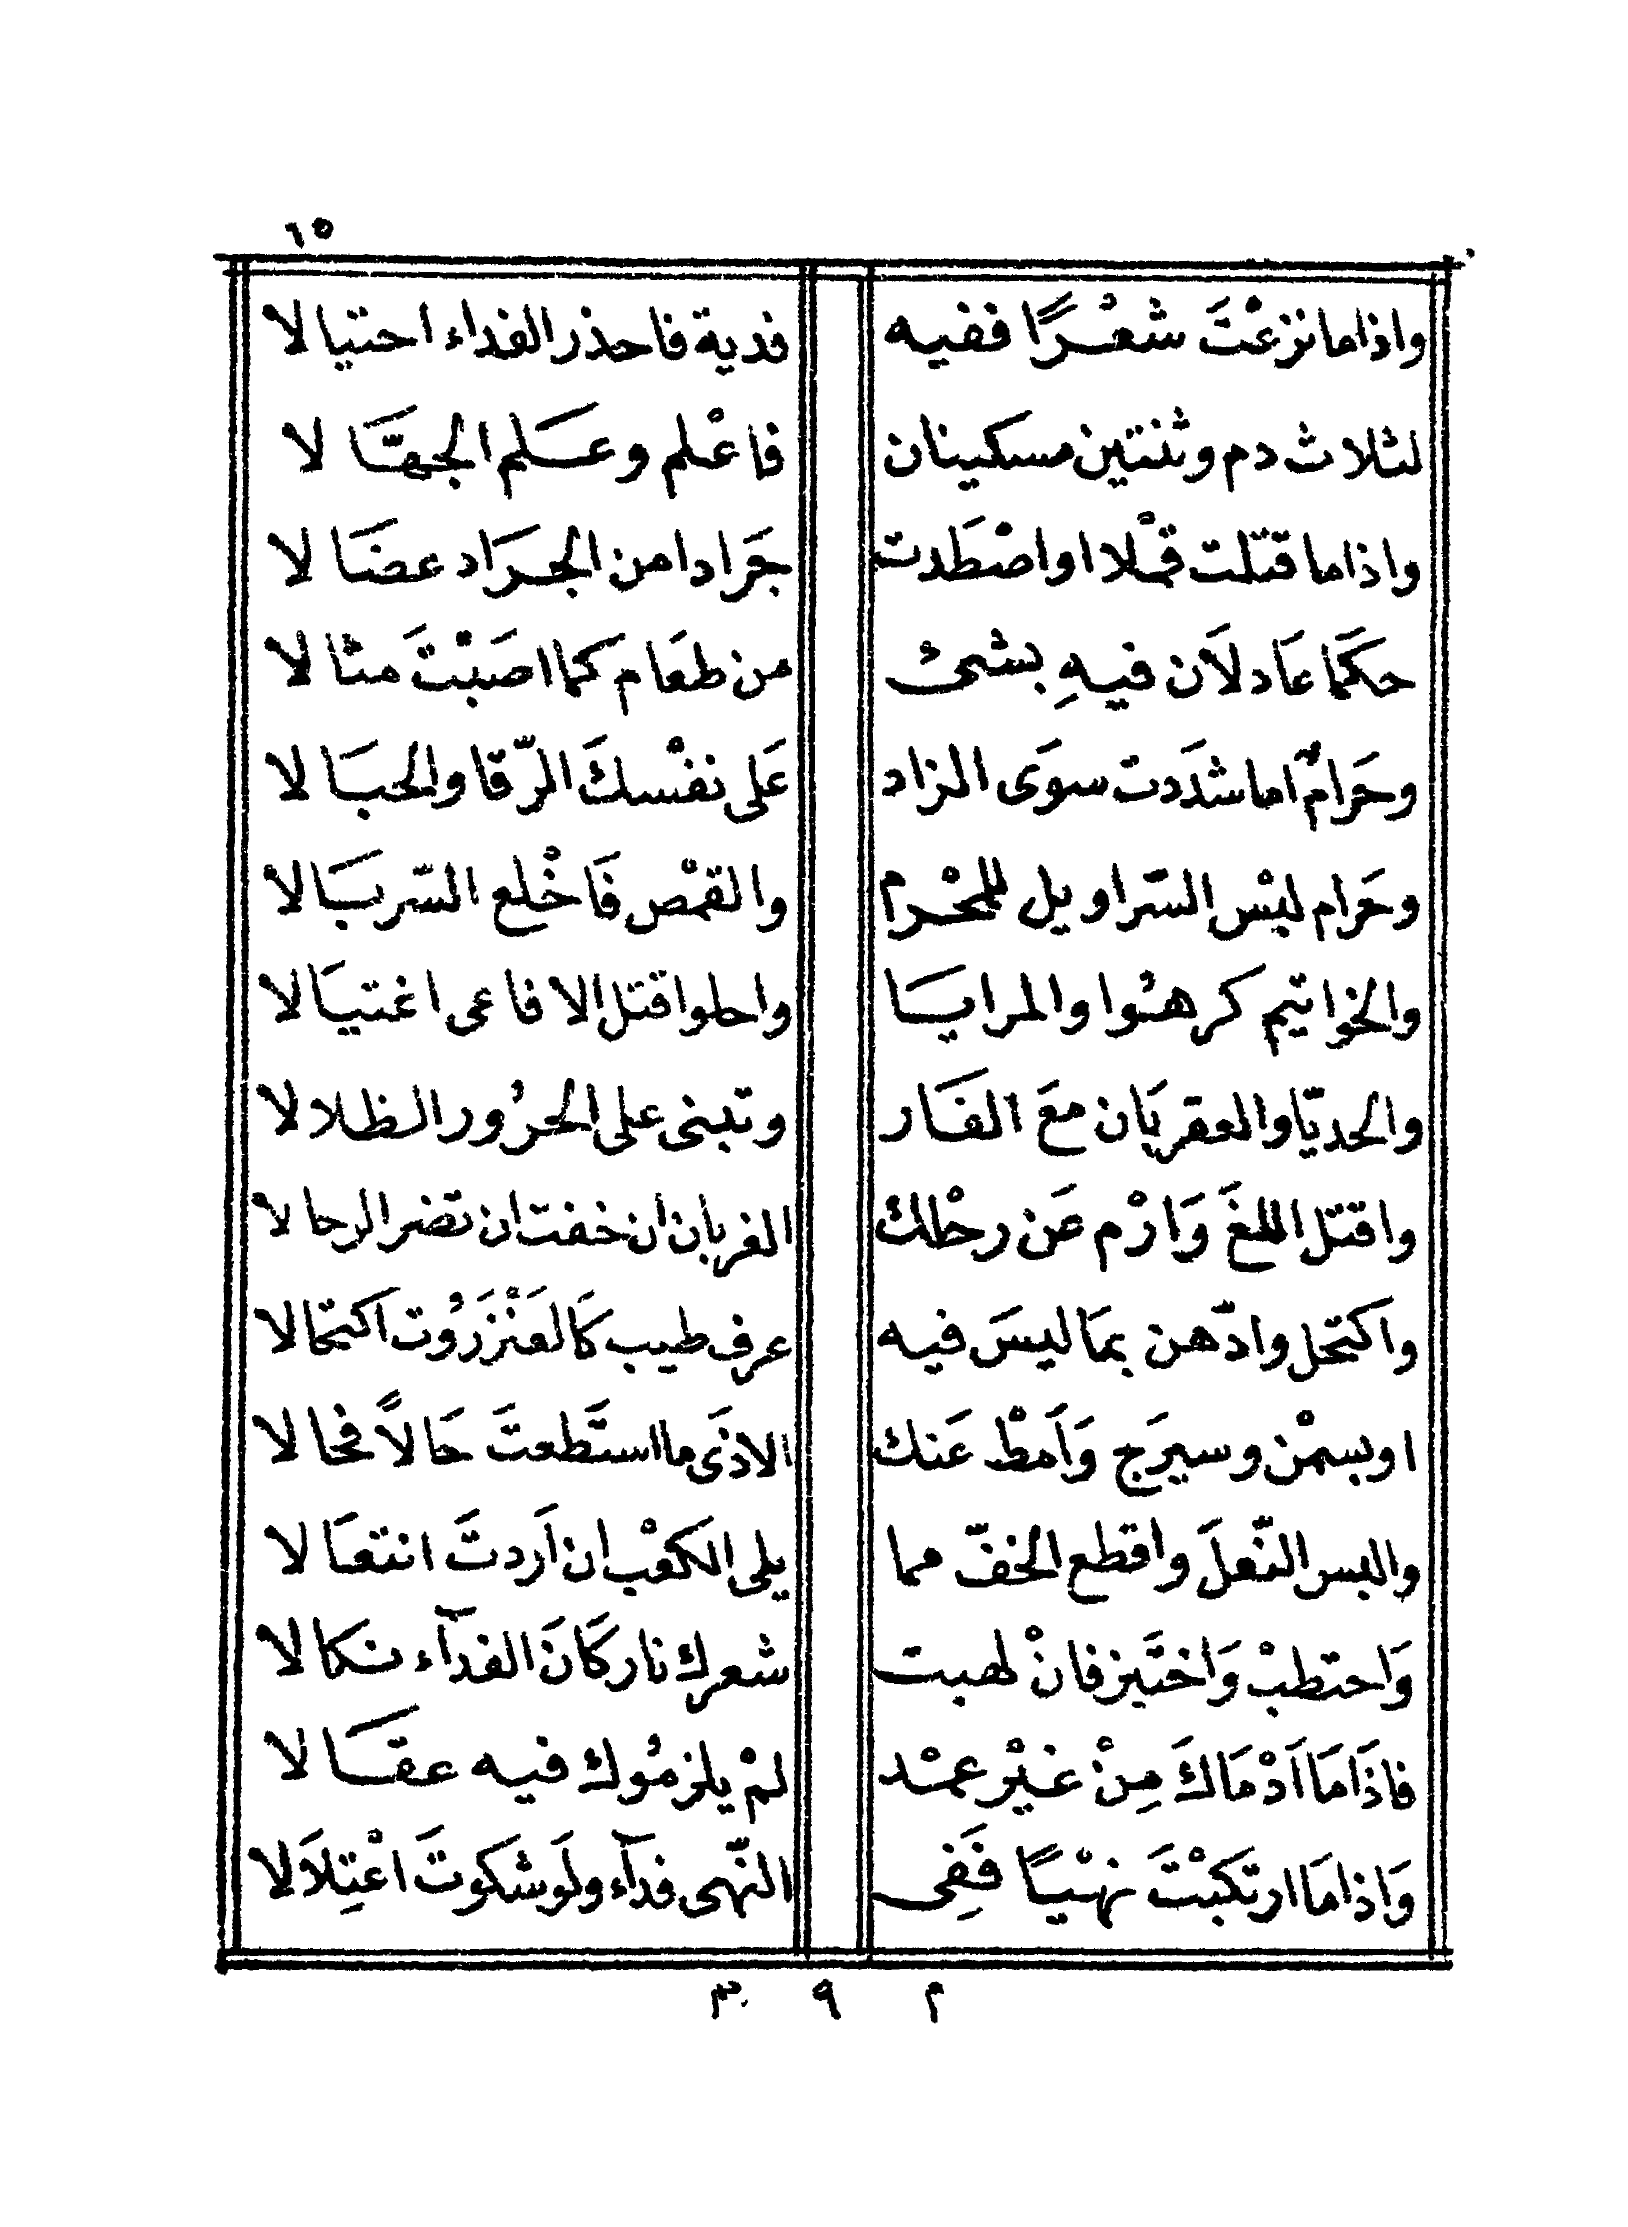 ٦٥
واذاما نزعْتَ شعْرًا ففيه فدية فاحذر الفداء احتيالا
لثلاث دم وثنتين مسكينان فاعْلم وعَلم الجهَّالا
واذاما قتلت قمْلا اواصْطَدت جَرادا من الجَراد عضَالا
حكمَّا عَادلاَن فيهِ بشئ من طعَام كما اصَبْتَ مثالا
وحَرامٌ اما شدَدت سوَى الزاد عَلى نفْسكَ الرّقا والحبَالا
وحَرام لبْس السّراويل للمحْرم والقمْص فَاخْلع السّربَالا
والخواتيم كرهوُا والمرايَا واحلوا قتل الافاعى اغتيَالا
والحديّا والعقربَان معَ الفَار وتبنى على الحرُور الظلالا
واقتل الملغَ وَارْم عَن رحْلك الغربان ان خفت ان تضر الرحالا
واكتحل وادّهن بمَا ليسَ فيه عرف طيب كَالعَنْزَرُوت اكتحالا
اوبسمْن وسيرَج وَاَمطْ عَنك الاذَى ما استَطعتَ حَالاً فحالا
والبس النّعلَ واقطع الخفّ مما يلى الكعْب ان اَردتَ انتعَالا
وَاحتطبْ وَاختَبز فانْ لهبت شعرك نار كَانَ الفدآء نكالا
فاذَامَا اَدْمَاكَ مِنْ غيْر عمْد لمْ يلزمُوك فيه عقَالا
وَاذامَا ارتكَبْتَ نهْيًا فَفِى النّهى فدآء ولَوشكوتَ اعْتِلاَلا
م ٩ ٣